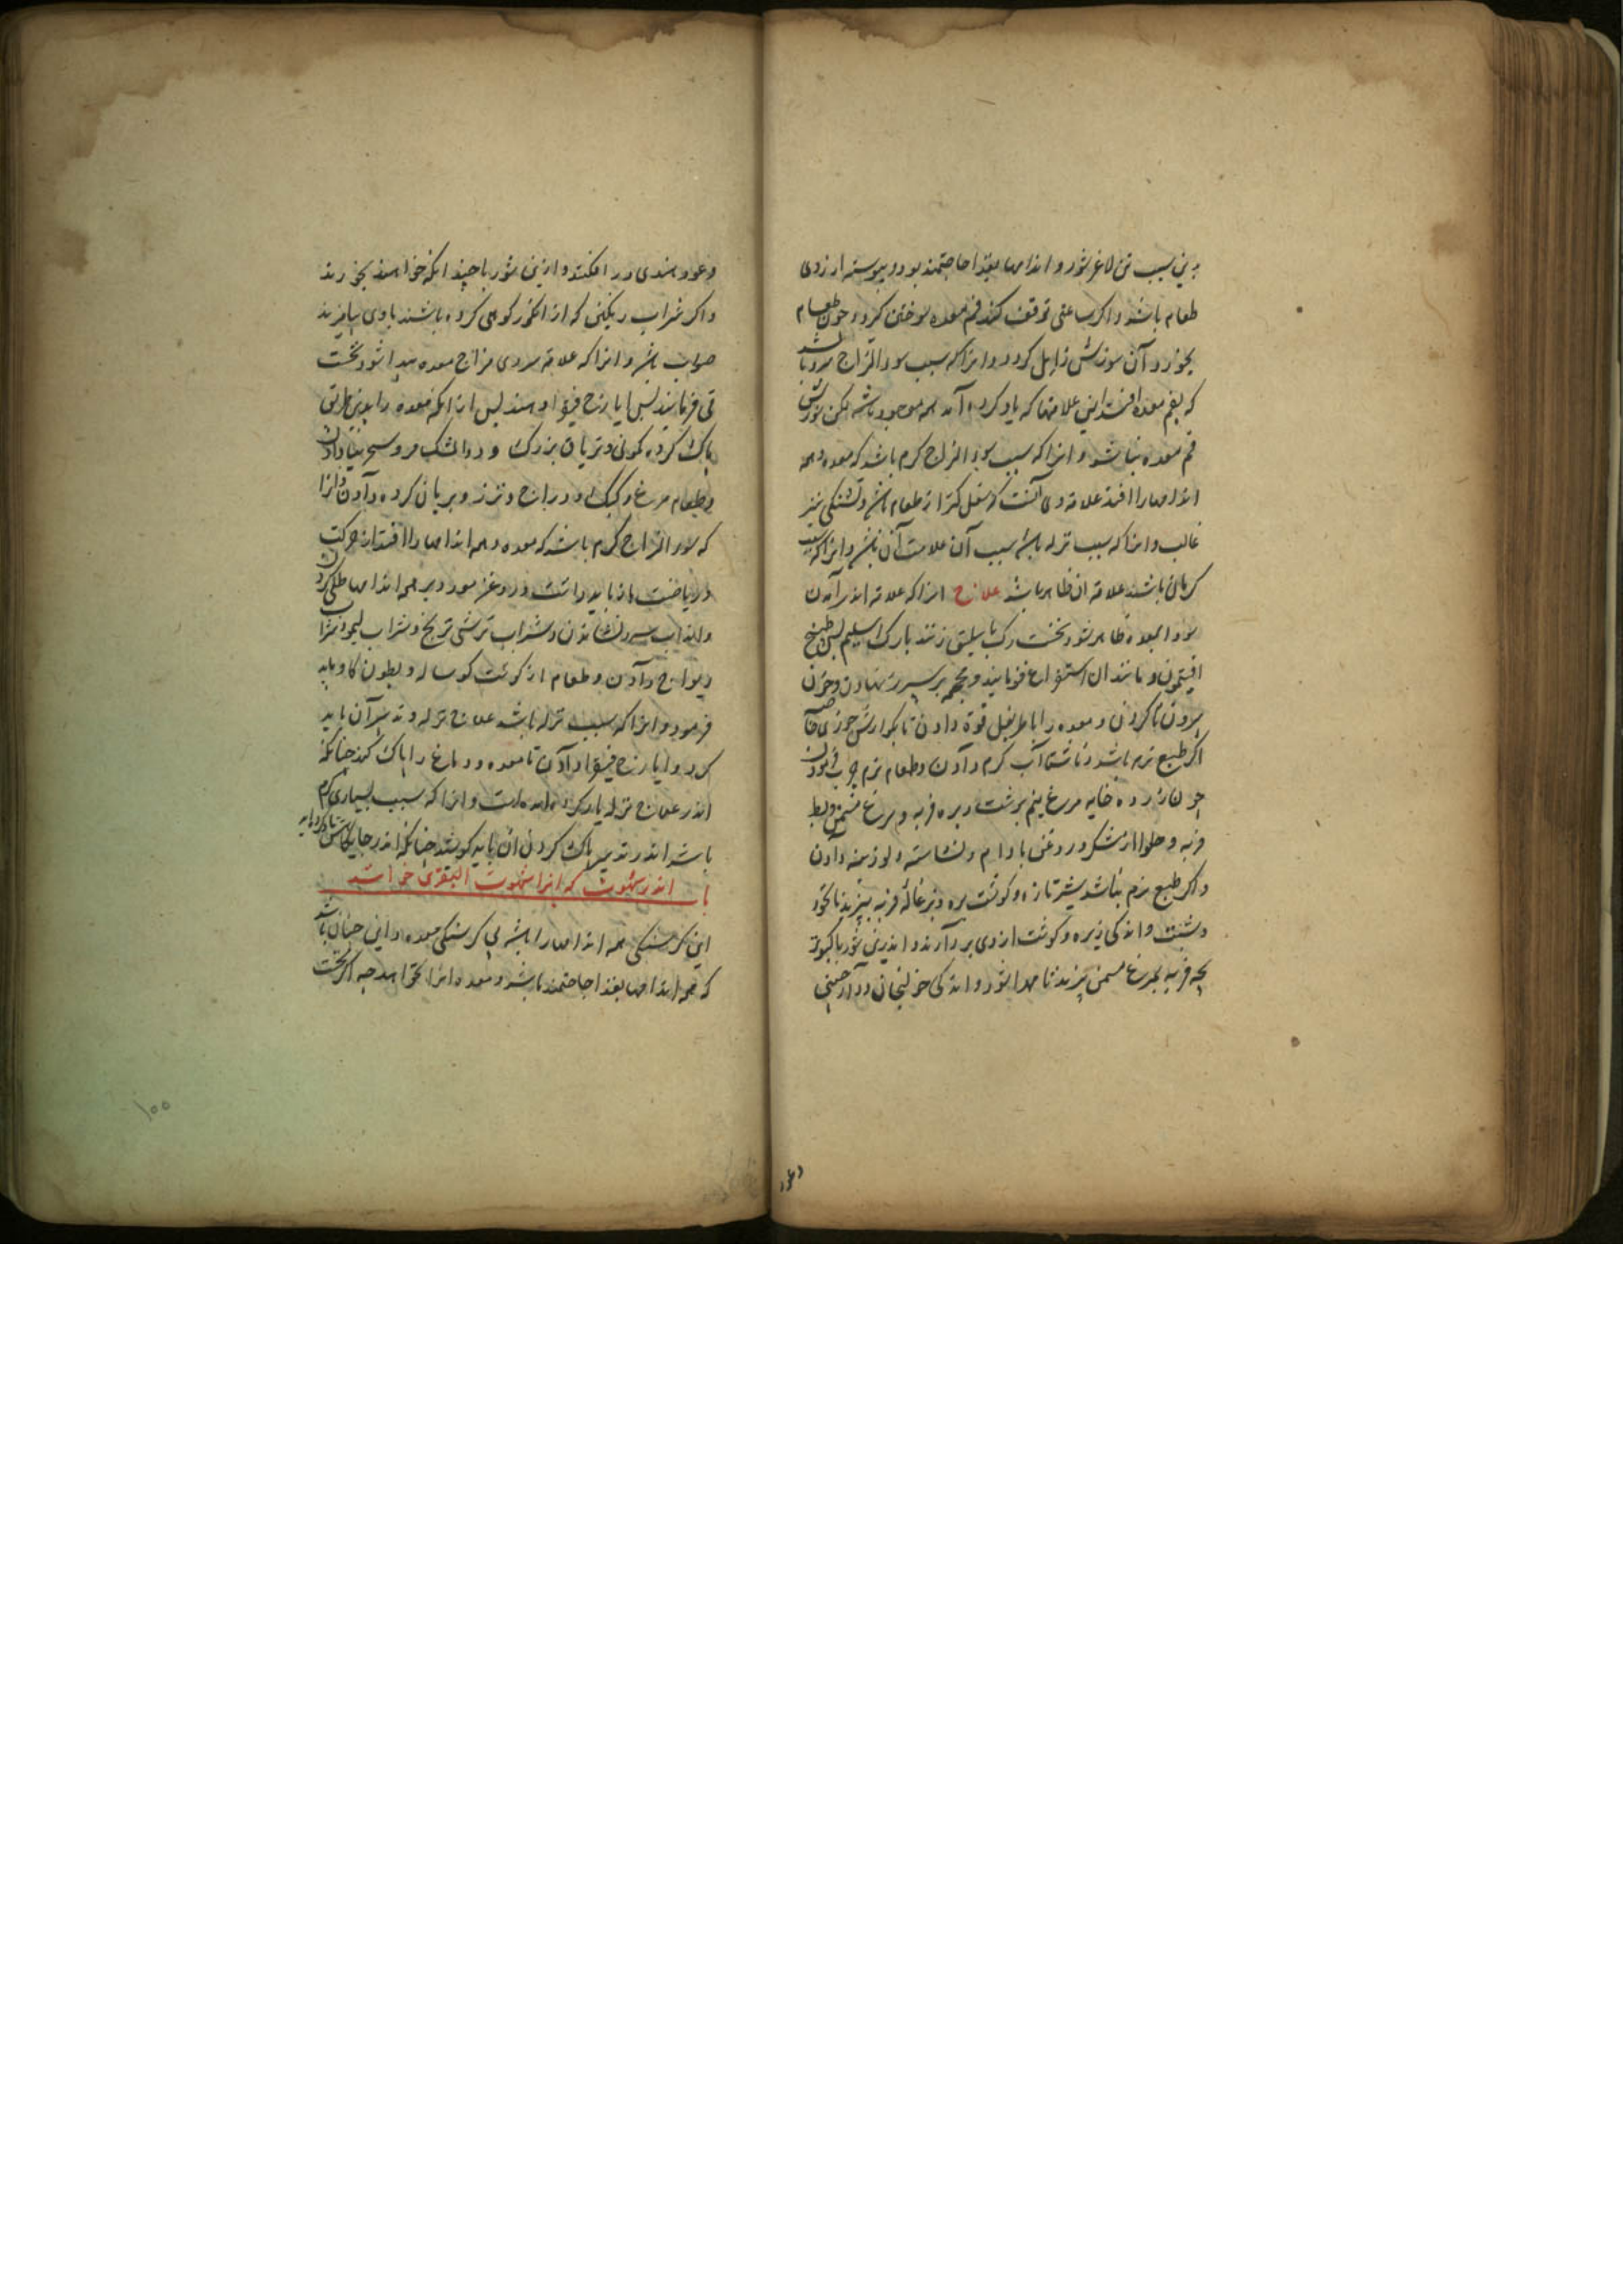 بدین سبب تن لاغر شود و اندامها بغذا حاجتمند بود و پیوسته ارزوی
طعام باشد و اکر ساعتی توقف کند فم معده سوختن کیرد و چون طعام
بخورد آن سوزش زایل کردد و انرا که سبب سوء المزاج سرد باشد
که بفم معده افتد این علامتها که یاد کرده آمد همه موجود باشد لکن سوزش
فم معده نباشد و انرا که سبب سوء المزاج کرم باشد که معده و همه
اندامها را افتد علامة وی آنست که ثفل کمتر از طعام باشد و تشنکی نیز
غالب و انرا که سبب نزله باشد سبب آن علامت آن باشد و انرا که سبب
کرمان باشند علامة ان ظاهر باشد علاج انرا که علامة اندر آمدن
سودا بمعده ظاهر شود نخست رک باسلیق زنند یا رک اسیلم پس بطبیخ
افتیمون و مانند ان استفراغ فرمایند و محجمه بر سپرز نهادن و خون
بیرون ناکردن و معده را باطریفل قوة دادن تا بکوارش جوزی خاصه
اکر طبع نرم باشد و ناشتا آب کرم دادن و طعام نرم چرب فرمودن
چون زرده خایه مرغ نیم برشت و بره فربه و مرغ مسمن و بط
فربه و حلوا از شکر و روغن بادام و نشاسته و لوزینه دادن
و اکر طبع نرم نباشد شیر تازه و کوشت بره و بزغاله فربه بپزند با نخود
و شبت و اندکی زیره و کوشت از وی بردارند و اندرین شوربا کبوتر
بچه فربه یا مرغ مسمن بپزند تا مهرا شود و اندکی خولنجان و دارچینی
وعود
وعود هندی در افکنند و ازین شوربا چندانکه خواهند بخورند
و اکر شراب ریکنی که از انکور کوهی کرده باشند با وی بیامیزند
صواب باشد و انرا که علامة سردی مزاج معده پیدا شود نخست
قی فرمایند پس ایارج فیقرا دهند پس از انکه معده را بدین طریق
پاک کرده کمونی و تریاق بزرک و دواء المسک مر و سجرینیا دادن
و طعام مرغ و کبک و دراج و تذرو بریان کرده دادن و انرا
که سوء المزاج کرم باشد که معده و همه اندامها را افتد از حرکت
و ریاضت باز باید داشت و روغن مورد بر همه اندامها طلی کردن
و اندر آب سرد نشاندن و شراب ترشی ترنج و شراب لیمو و شراب
ریواج دادن و طعام از کوشت کوساله و بطون کاو باید
فرمود و انرا که سبب نزله باشد علاج نزله و تدبیر آن باید
کرد و ایارج فیقرا دادن تا معده و دماغ را پاک کند چنانکه
اندر علاج نزله یاد کرده آمده است و انرا که سبب بسیاری کرم
باشد اندر تدبیر پاک کردن آن باید کوشید چنانکه اندر جایکاهش یاد کرده آید
باب اندر شهوت که انرا شهوت البقری خوانند
این کرسنکی همه اندامها را باشد بی کرسنکی معده و این چنان باشد
که همه اندامها بغذا حاجتمند باشد و معده انرا نخواهد چه اکر نخست
۱۰۰